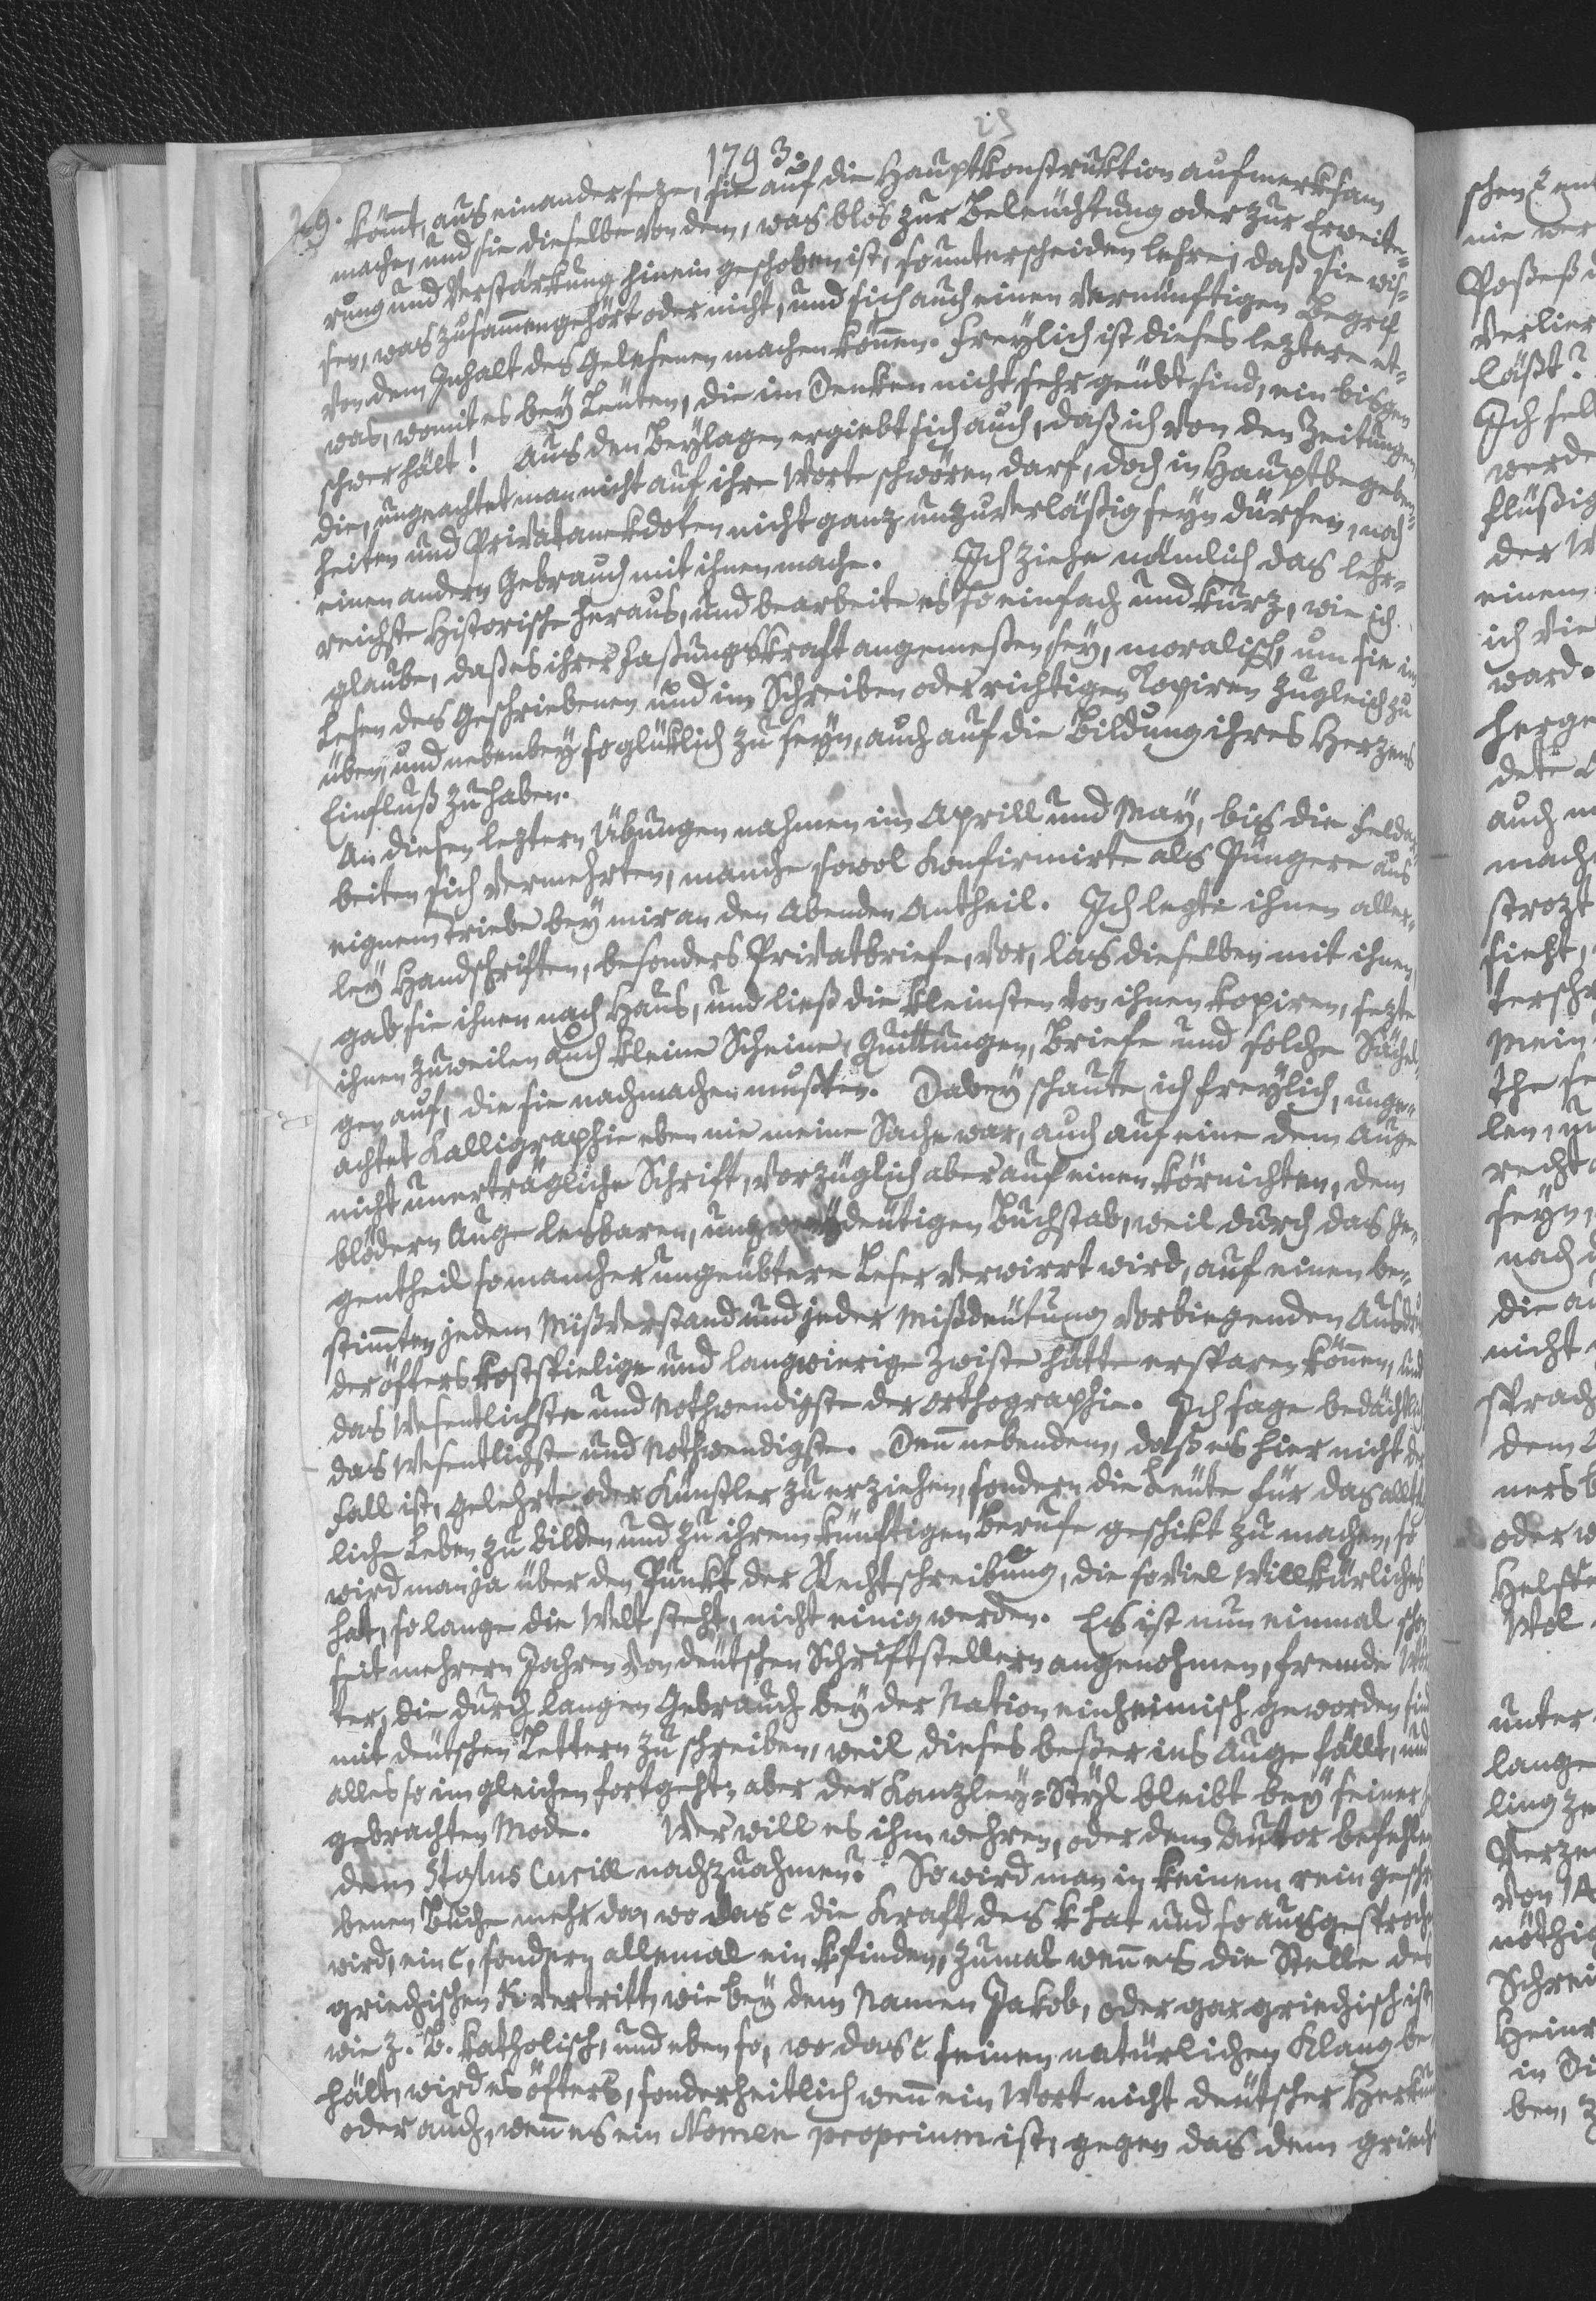 1793.
kömt, auseinandersetze, sie auf die Hauptkonstruktion aufmerksam
mache, und sie dieselbe von dem, was blos zur Beleuchtung oder zur Erweite-
rung und Verstärkung hinein geschoben ist, so unterscheiden lehre, daß sie wis-
sen, was zusammengehört oder nicht, und sich auch einen vernünftigen Begrif
von dem Inhalt des Gelesenen machen können. Freylich ist dieses leztere et-
was, womit es bey Leuten, die im Denken nicht sehr geübt sind, ein bisgen
schwer hält! Aus den Beylagen ergiebt sich auch, daß ich von den Zeitungen,
die, ungeachtet man nicht auf ihre Worte schwören darf, doch in Hauptbegeben-
heiten und Privatanekdoten nicht ganz unzuverläßig seyn dürfen, noch
einen andern Gebrauch mit ihnen mache. Ich ziehe nämlich das lehr-
reichste Historische heraus, und bearbeite es so einfach und kurz, wie ich
glaube, daß es ihrer Faßungskraft angemeßen sey, moralisch, um sie im
Lesen des Geschriebenen und im Schreiben oder richtigen Kopiren zugleich zu
üben, und nebenbey so glüklich zu seyn, auch auf die Bildung ihres Herzens
Einfluß zu haben.
An diesen leztern Übungen nahmen im Aprill und May, bis die Feldar-
beiten sich vermehrten, manche sowol Konfirmirte als Jüngere aus
eignem Triebe bey mir an den Abenden Antheil. Ich legte ihnen aller-
ley Handschriften, besonders Privatbriefe, vor, las dieselben mit ihnen,
gab sie ihnen nach Haus, und ließ die kleinsten von ihnen kopiren, sezte
ihnen zuweilen auch kleine Scheine, Quittungen, Briefe und solche Sächel-
gen auf, die sie nachmachen mußten. Dabey schaute ich freylich, unge-
achtet Kalligraphie eben nie meine Sache war, auch auf eine dem Auge
nicht unerträgliche Schrift, vorzüglich aber auf einen körnichten, dem
blödern Auge lesbaren, unzweydeutigen Buchstab, weil durch das Ge-
gentheil so mancher ungeübtere Leser verwirrt wird, auf einen be-
stimten jedem Mißverstand und jeder Mißdeutung vorbiegenden Ausdruk
der öfters kostspielige und langwierige Zwiste hätte ersparen können, und
das Wesentlichste und Nothwendigste der Orthographie. Ich sage bedächtlich
das Wesentlichste und Nothwendigste. Denn nebendem, daß es hier nicht der
Fall ist, Gelehrte oder Künstler zu erziehen, sondern die Leute für das alltäg
liche Leben zu bilden und zu ihrem künftigen Berufe geschikt zu machen, so
wird man ja über den Punkt der Rechtschreibung, die soviel Willkürliches
hat, so lange die Welt steht, nicht einig werden. Es ist nun einmal schon
seit mehrern Jahren von deutschen Schriftstellern angenohmen, fremde Wör
ter, die durch langen Gebrauch bey der Nation einheimisch geworden sind
mit deutschen Lettern zu schreiben, weil dieses beßer ins Auge fällt, und
alles so im gleichen fortgeht, aber der Kanzley-Styl bleibt bey seiner
gebrachten Mode. Wer will es ihm wehren, oder dem Autor befehlen
dem Stylus Curiae nachzuahmen? So wird man in keinem rein geschr
benen Buche mehr da, wo das c die Kraft des k hat und so ausgesproche
wird, ein c, sondern allemal ein k finden, zumal wenn es die Stelle des
griechischen K vertritt, wie bey dem Namen Jakob, oder gar griechisch ist,
wie z. B. katholisch, und eben so, wo das c seinen natürlichen Klang be
hält, wird es öfters, sonderheitlich wenn ein Wort nicht deutscher Herkun
oder auch, wenn es ein Nomen proprium ist, gegen das dem griech